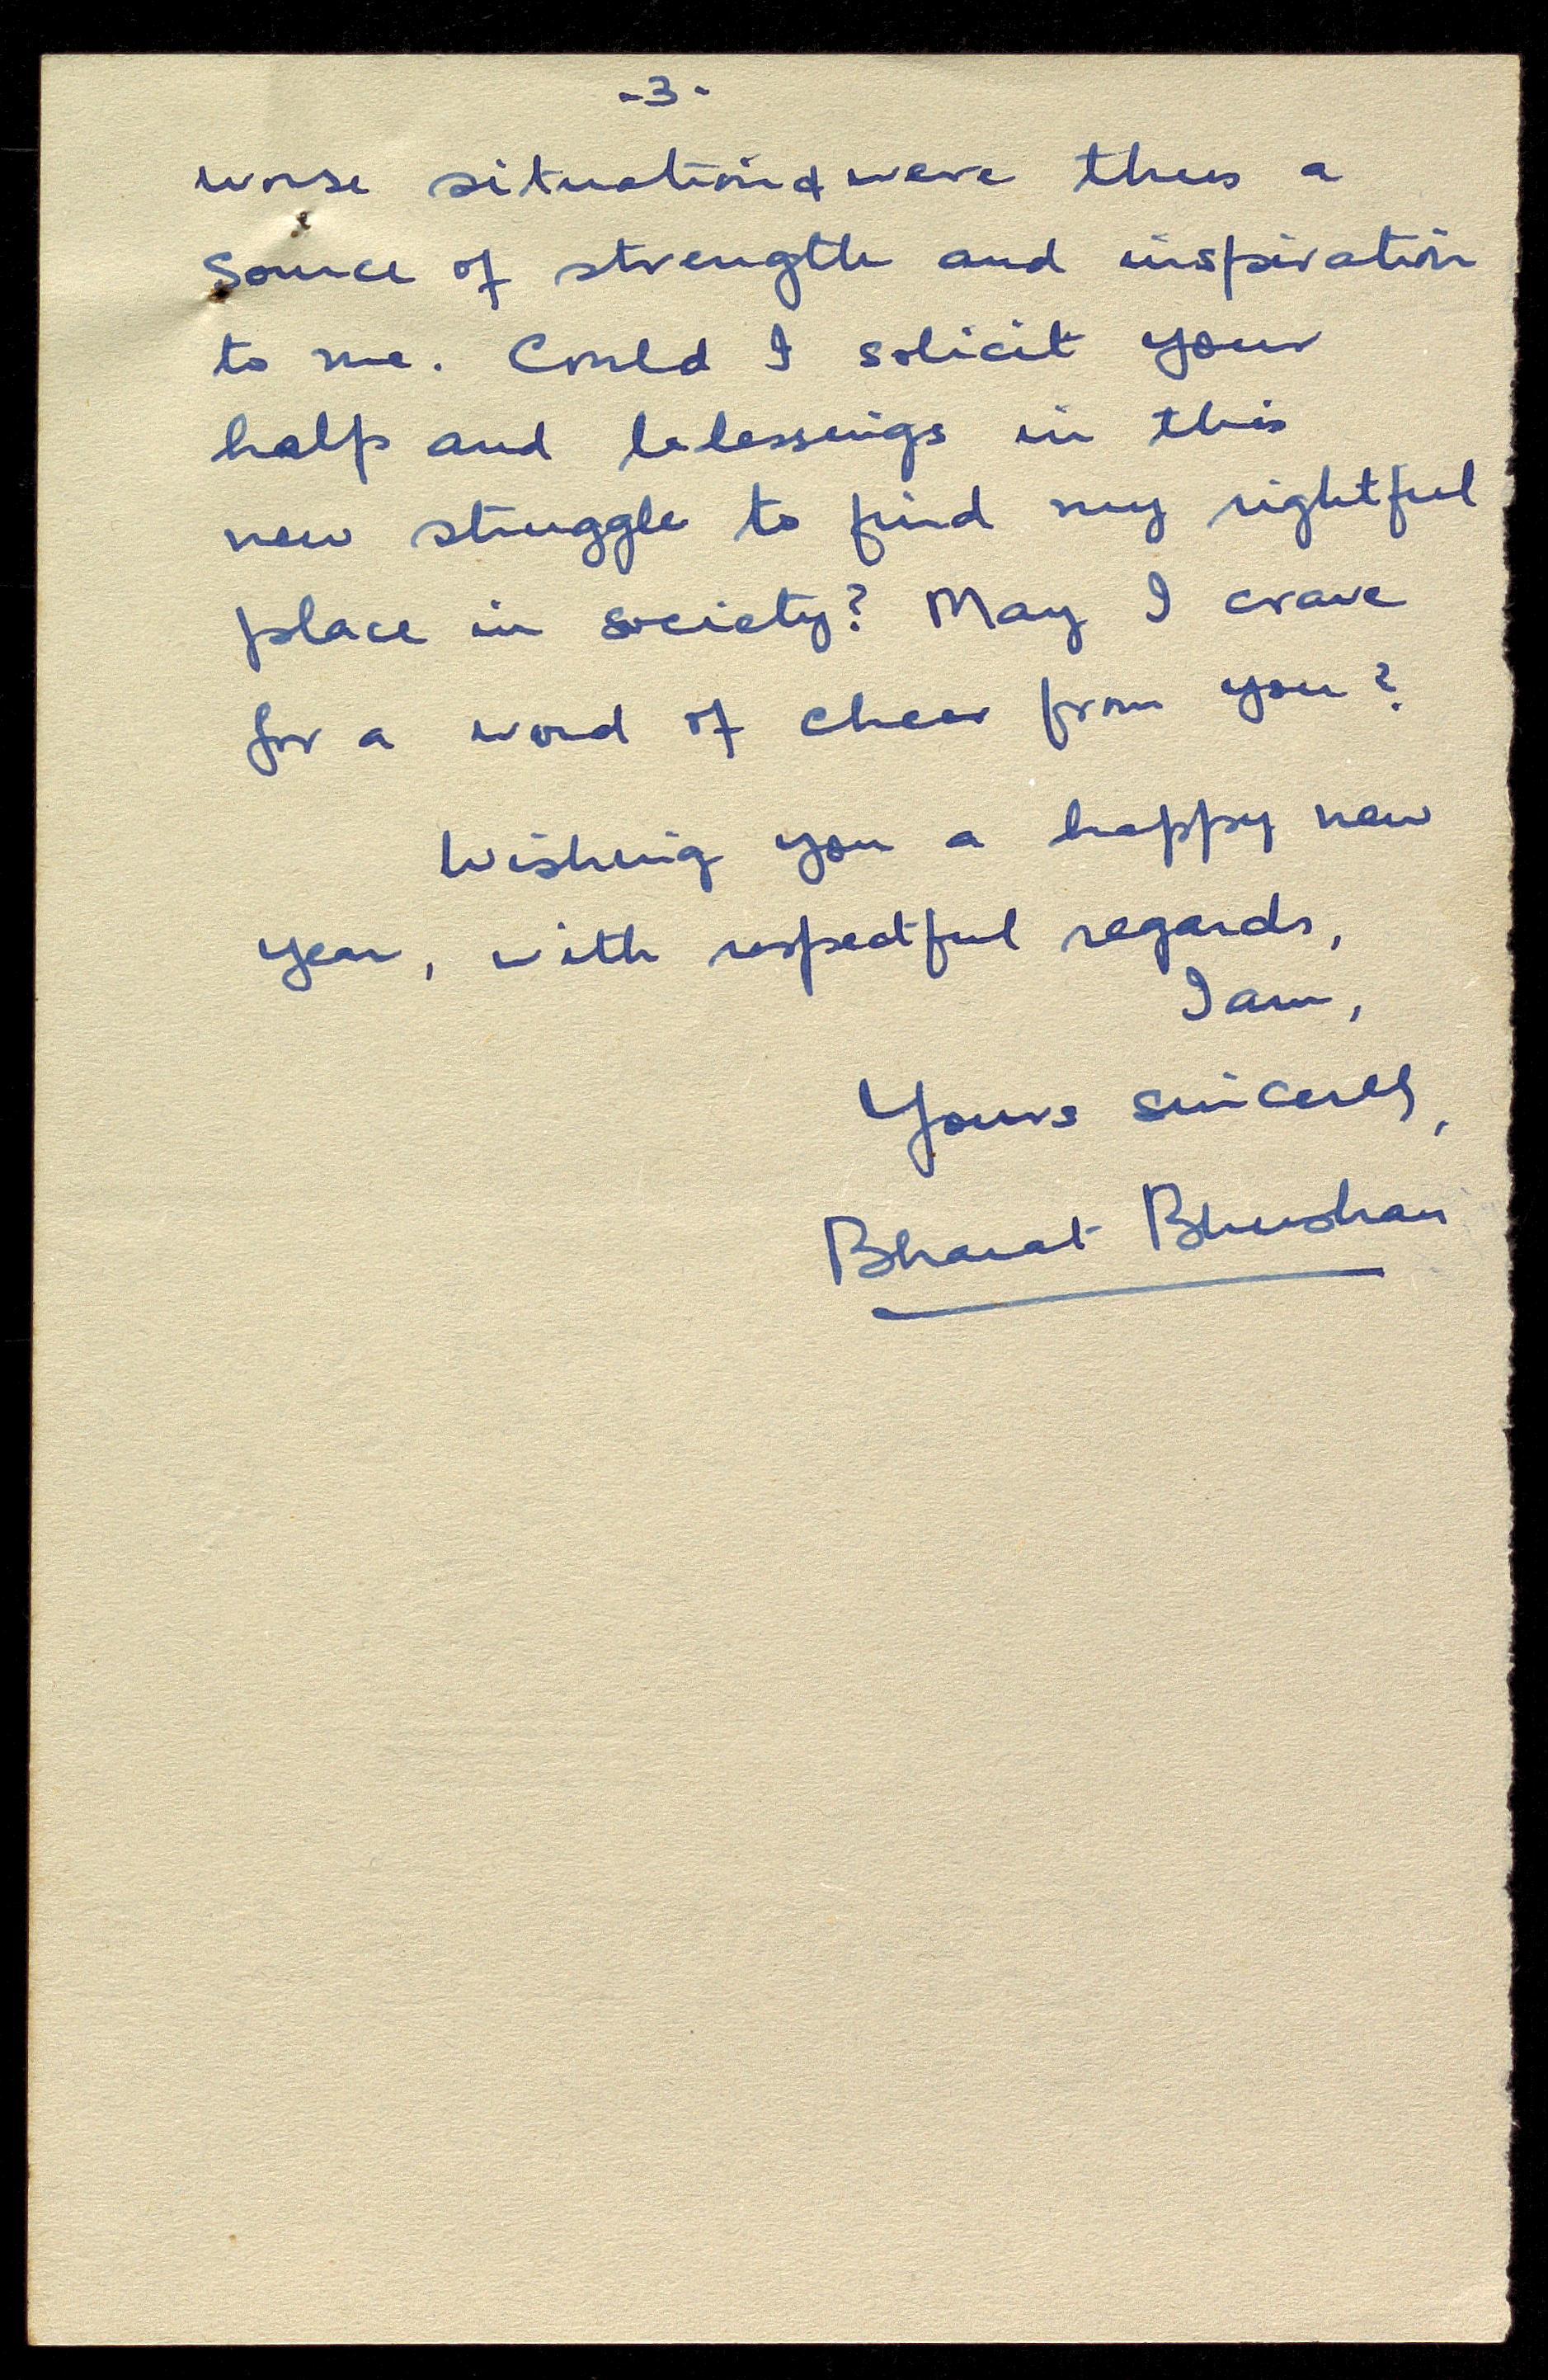 -3-
worse situation & were thus a
source of strength and inspiration
to me. Could I solicit your
help and blessings in this
new struggle to find my rightful
place in society? May I crave
for a word of cheer from you?
Wishing you a happy new
year, with respectful regards,
I am,
Yours sincerely,
Bharat Bhushan